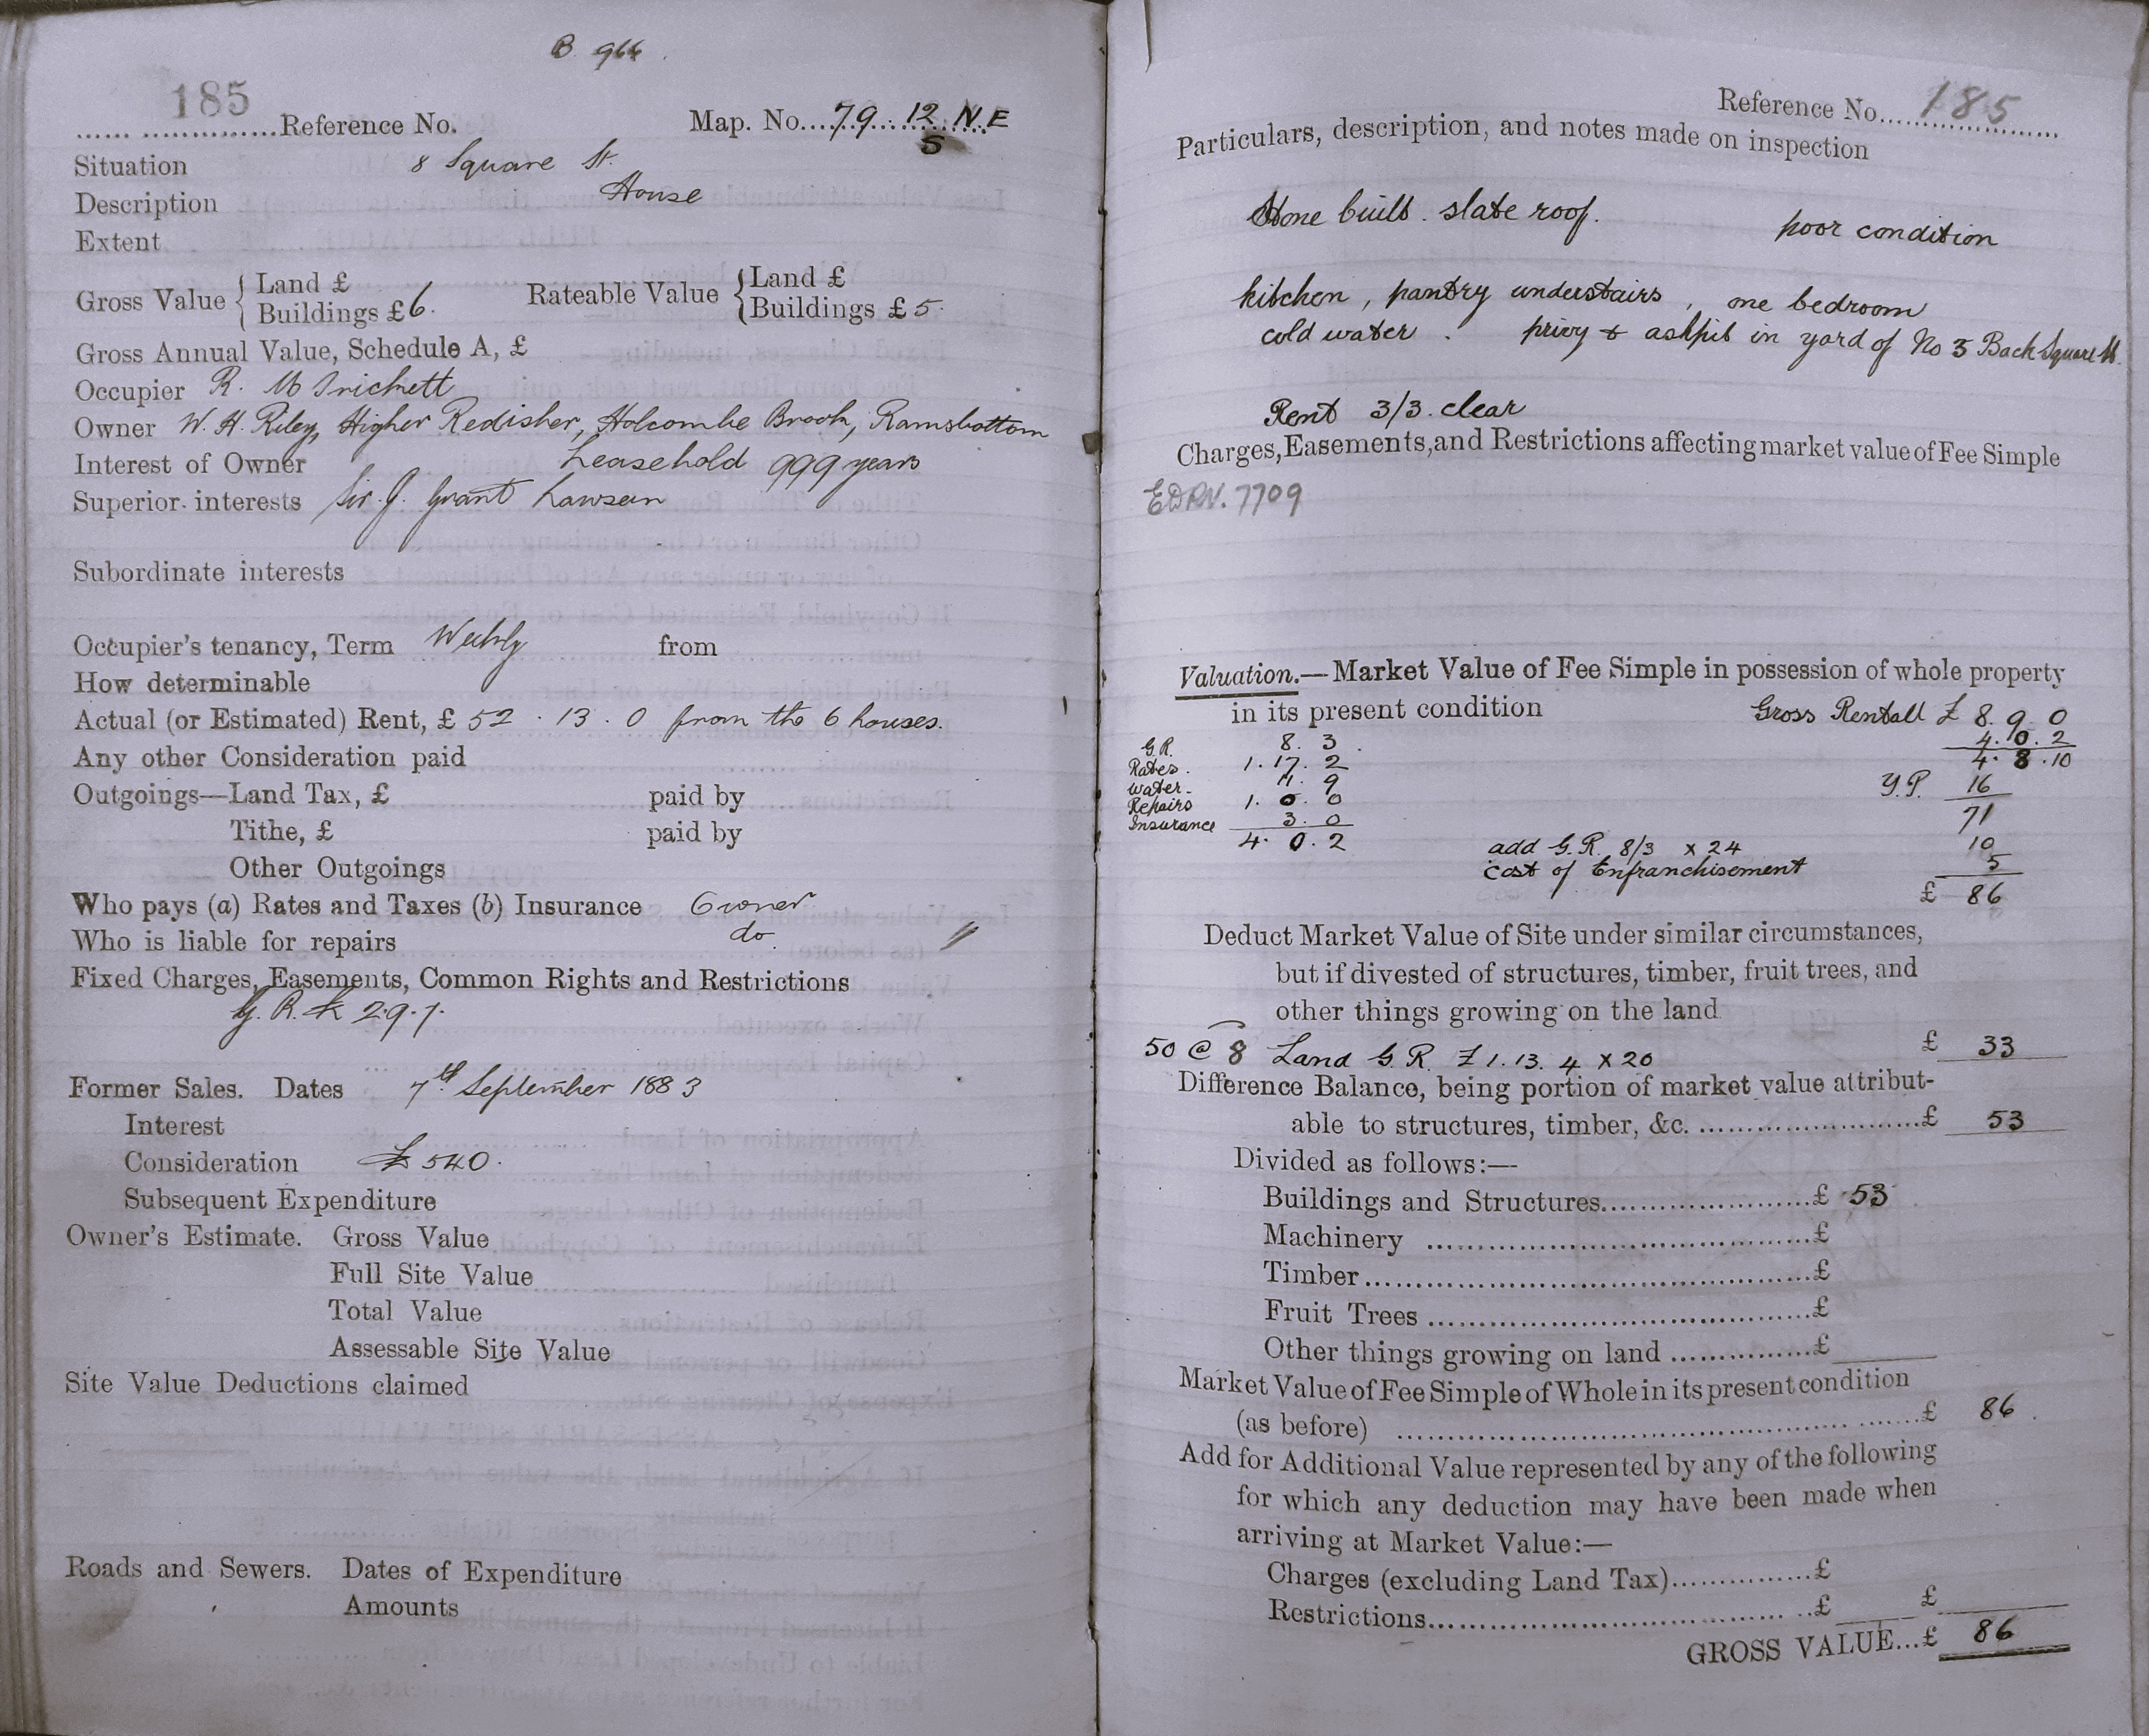 B. 966
185 Reference No. Map. No. 79. 12 N.E
S
Situation 8 Square St.
Description House
Extent
Gross Value { Land £
Buildings £ 6. Rateable Value { Land £
Buildings £ 5.
Gross Annual Value, Schedule A, £
Occupier R. M Trickett
Owner W. H. Riley, Higher Redisher, Holcombe Brook, Ramsbottom
Interest of Owner Leasehold 999 years
Superior interests Sir. J. Grant Lawson
Subordinate interests
Occupier's tenancy, Term Weekly from
How determinable
Actual (or Estimated) Rent, £ 52 . 13 . 0 from the 6 houses.
Any other Consideration paid
Outgoings—Land Tax, £ paid by
Tithe, £ paid by
Other Outgoings
Who pays (a) Rates and Taxes (b) Insurance Owner
Who is liable for repairs do. "
Fixed Charges, Easements, Common Rights and Restrictions
G. R. £ 2.9.7.
Former Sales. Dates 7th September 1883
Interest
Consideration £540.
Subsequent Expenditure
Owner's Estimate. Gross Value
Full Site Value
Total Value
Assessable Site Value
Site Value Deductions claimed
Roads and Sewers. Dates of Expenditure
Amounts
Reference No. 185
Particulars, description, and notes made on inspection
Stone built. slate roof. poor condition
kitchen, pantry understairs, one bedroom
cold water. privy & ashpit in yard of No 3 Back Square St.
Rent 3/3. clear
Charges, Easements, and Restrictions affecting market value of Fee Simple
EDRV. 7709
Valuation.—Market Value of Fee Simple in possession of whole property
in its present condition Gross Rentall £ 8. 9. 0
G.R. 8. 3. 4. 0. 2
Rates. 1. 17. 2 4. 8. 10
Water. 11. 9 Y.P. 16
Repairs 1. 0. 0 71
Insurance 3. 0
4. 0. 2 add G.R. 8/3 x 24 10
cost of Enfranchisement 5
£ 86
Deduct Market Value of Site under similar circumstances,
but if divested of structures, timber, fruit trees, and
other things growing on the land
50 @ 8 Land G.R. £1. 13. 4 x 20 £ 33
Difference Balance, being portion of market value attribut-
able to structures, timber, &c. £ 53
Divided as follows:—
Buildings and Structures £ 53
Machinery £
Timber £
Fruit Trees £
Other things growing on land £
Market Value of Fee Simple of Whole in its present condition
(as before) £ 86.
Add for Additional Value represented by any of the following
for which any deduction may have been made when
arriving at Market Value:—
Charges (excluding Land Tax) £
Restrictions £ £
GROSS VALUE... £ 86